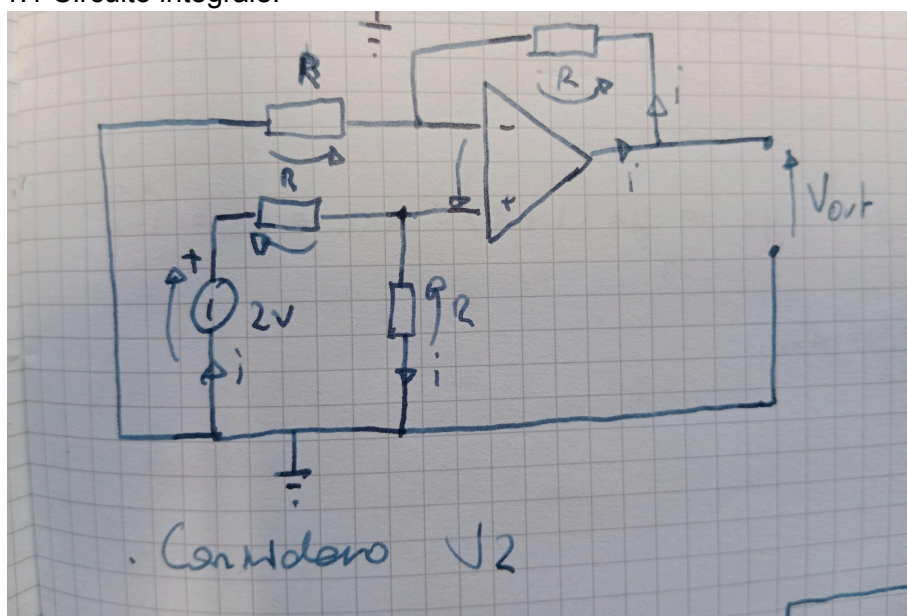 R
R
-
i
R
i
+
Vout
+
2V
R
i
i
. Considero V2